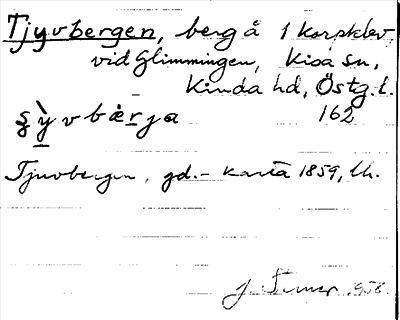 Tjyvbergen, berg å 1 korpklev
vid Glimmingen, Kisa sn,
Kinda hd, Östg.l.
ʂỳvbærja 162
Tjuvbergen, gd.- karta 1859, lh.
J. 1958